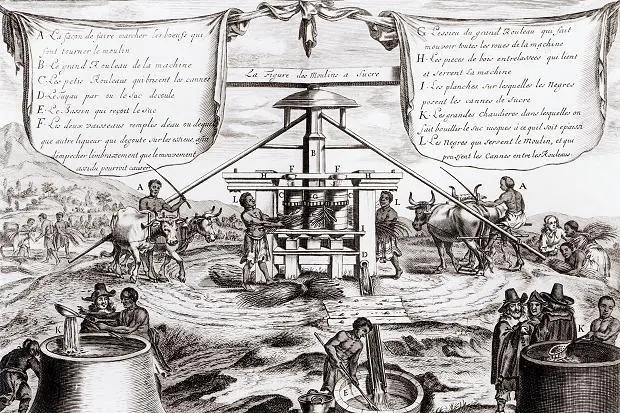 A La façon de faire marcher les bœufs qui
font tourner le moulin
B Le grand Rouleau de la machine
C Les petis Rouleaux qui brisent les cannes
D Le Tuyau par ou le Suc decoule
E Le Bassin qui reçoit le suc
F Les deux vaisseaux remplis d'eau ou de quel
que autre liqueur qui degoute sur les essieux, affin
d'empecher l'embrasement que le mouvement
assidu pourroit causer
La Figure des Moulins a Sucre
G Lessieu du grand Rouleau qui fait
mouvoir toutes les roues de la machine
H Les pieces de bois entrelassées qui lient
et serrent la machine
I Les planches sur lesquelles les Negres
posent les cannes de sucre
K Les grandes Chaudieres dans lesquelles on
fait bouillir le suc jusques a ce qu'il soit epaissi
L Les Negres qui servent le Moulin, et qui
pressent les Cannes entre les Rouleaux
A
B
A
F F
I
L
L
C
D
K
E
K